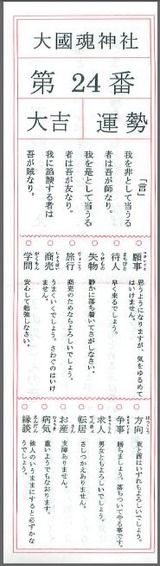 大國魂神社
第24番
大吉 運勢
「言」
我を非として当うる
者は吾が師なり。
我を是として当うる
者は吾が友なり。
我に諂諛する者は
吾が賊なり。
願事 思うようになりますが、気をゆるめて
はいけません。
待人 早く来るでしょう。
失物 静かに落ち着いてさがしなさい。
旅行 商売のためならよろしいでしょう。
商売 うまくいくでしょう。さわぐのはいけ
ません。
学問 安心して勉強しなさい。
方向 東と西はいずれもよろしいでしょう。
争事 勝ちましょう。落ちついてやる事です。
求人 男女ともよろしいでしょう。
転居 さしつかえありません。
お産 支障ありません。
病気 重いようでもなおります。
縁談 他人のいうままにすると必ずかな
うでしょう。